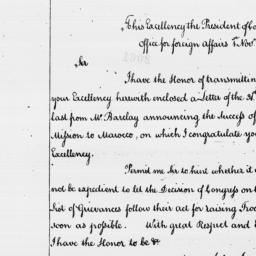 His Excellency the President of Co
Office for foreign Affairs 2 Nov.
Sir
I have the Honor of transmittin
your Excellency herewith enclosed a Letter of the
last from Mr. Barclay announcing the Success of
Mission to Marocco, on which I congratulate yo
Excellency.
Permit me Sir to hint whether it
not be expedient to let the Decision of Congress on t
List of Grievances follow their act for raising Troo
soon as possible. With great Respect and
I have the Honor to be &